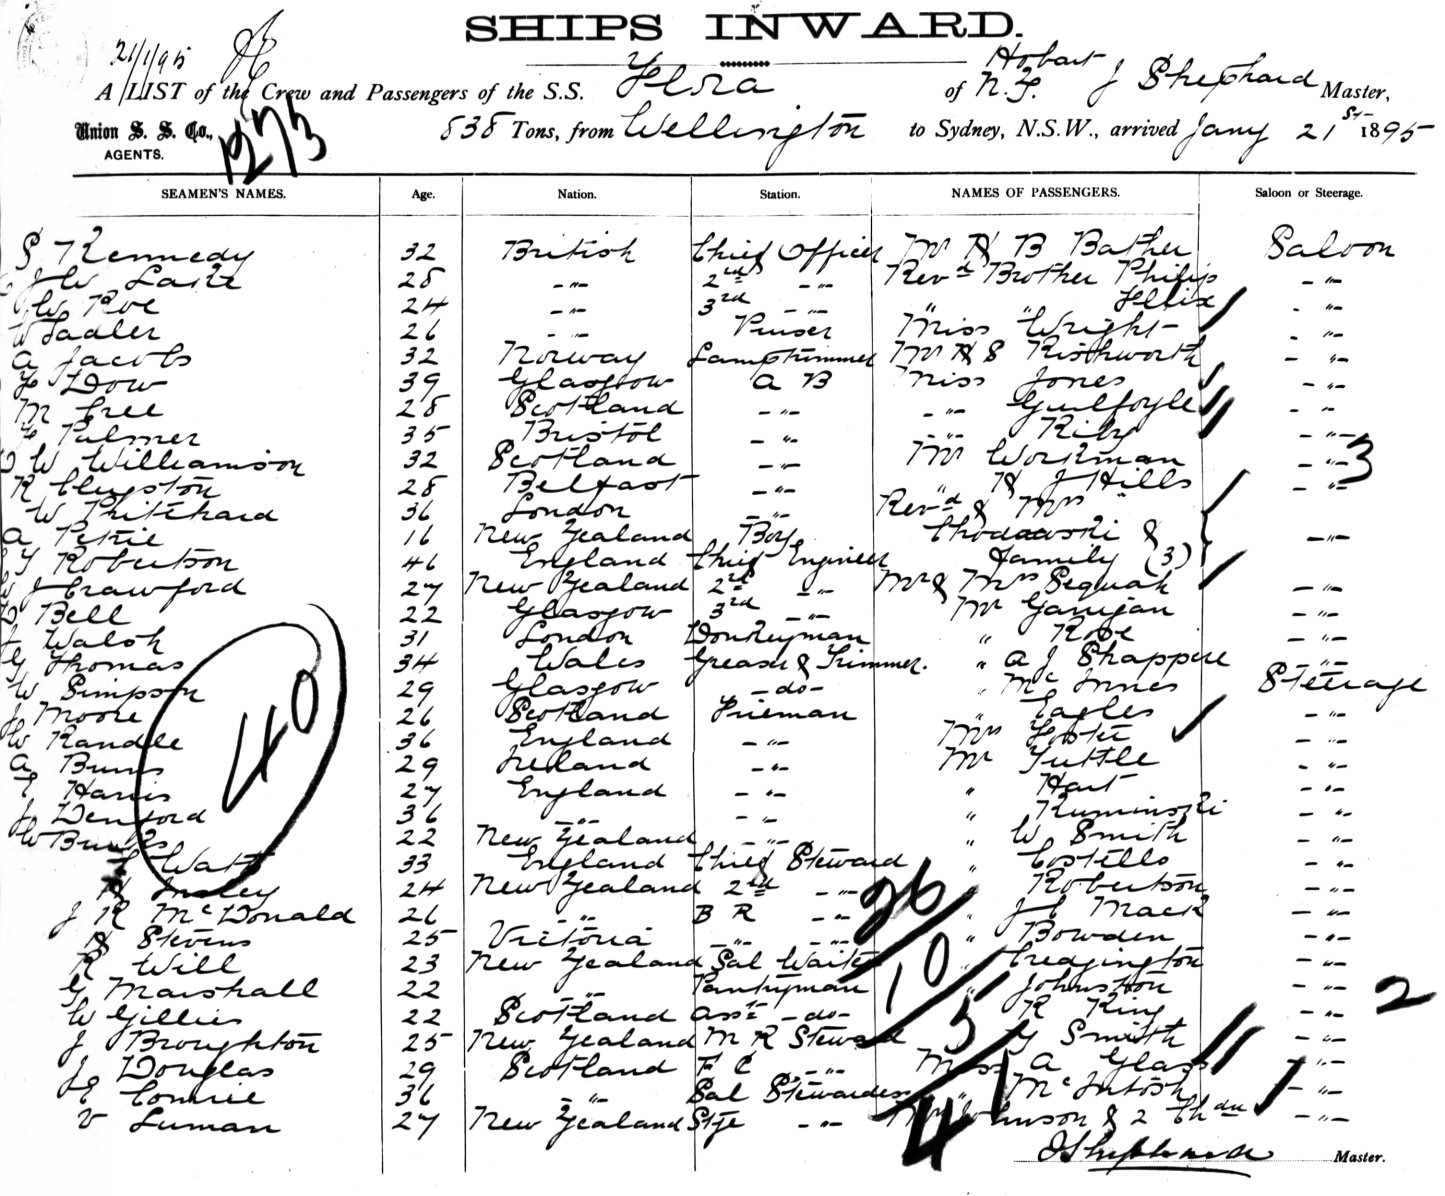 SHIPS INWARD.
21/1/95
Hobart
A LIST of the Crew and Passengers of the S.S. Flora of N.Z. J Shephard Master,
Union S. S. Co., 838 Tons, from Wellington to Sydney, N.S.W., arrived Jany 21st 1895
AGENTS.
SEAMEN'S NAMES. Age. Nation. Station. NAMES OF PASSENGERS. Saloon or Steerage.
S Kennedy 32 British Chief Officer Mr H B Bather Saloon
J W Lake 28 -"- 2nd -"- Revd Brother Philip -"-
W Roe 24 -"- 3rd -"- " " Felix -"-
W Sadler 26 -"- Purser Miss Wright -"-
A Jacobs 32 Norway Lamptrimmer Mr H S Rishworth -"-
Dow 39 Glasgow A B Miss Jones -"-
M Cree 28 Scotland -"- -"- Guilfoyle -"-
Palmer 35 Bristol -"- -"- Riby -"-
W Williamson 32 Scotland -"- Mr Workman -"- 3
R Clugston 28 Belfast -"- " H J Hills -"-
W Pritchard 36 London -"- Revd & Mrs
A Petrie 16 New Zealand Boy Chodowski & -"-
Robertson 46 England Chief Engineer Family (3)
J Crawford 27 New Zealand 2nd -"- Mr & Mrs Sequah -"-
Bell 22 Glasgow 3rd -"- Mr Garrigan -"-
J Walsh 31 London Donkeyman " Rose -"-
G Thomas 34 Wales Greaser & Trimmer. " A J Shappere -"-
W Simpson 29 Glasgow -do- " Mc Innes Steerage
J Moore 26 Scotland Fireman " Eagles -"-
W Randle 36 England -"- Mrs Foster -"-
A Burns 29 Ireland -"- Mr Tuttle -"-
E Harris 27 England -"- " Hart -"-
J Denford 36 -"- -"- " Ruminski -"-
W 22 New Zealand -"- " W Smith -"-
Watt 33 England Chief Steward " Costello -"-
24 New Zealand 2nd -"- 26 " Robertson -"-
J R Mc Donald 26 -"- B R -"- " J C Mack -"-
H Stevens 25 Victoria -"- -"- " Bowden -"-
R Will 23 New Zealand Sal Waiter 10 " Credgington -"-
G Marshall 22 -"- Pantryman " Johnston -"- 2
W Gillies 22 Scotland Asst -do- R King -"-
J Broughton 25 New Zealand M R Steward 5 G Smith -"-
J Douglas 29 Scotland F C -"- Miss A Glass -"-
Connie 36 -"- Sal Stewardess Mc Intosh -"-
V Luman 27 New Zealand Stge -"- Johnson & 2 Chdn -"-
40
4
J Shephard Master.